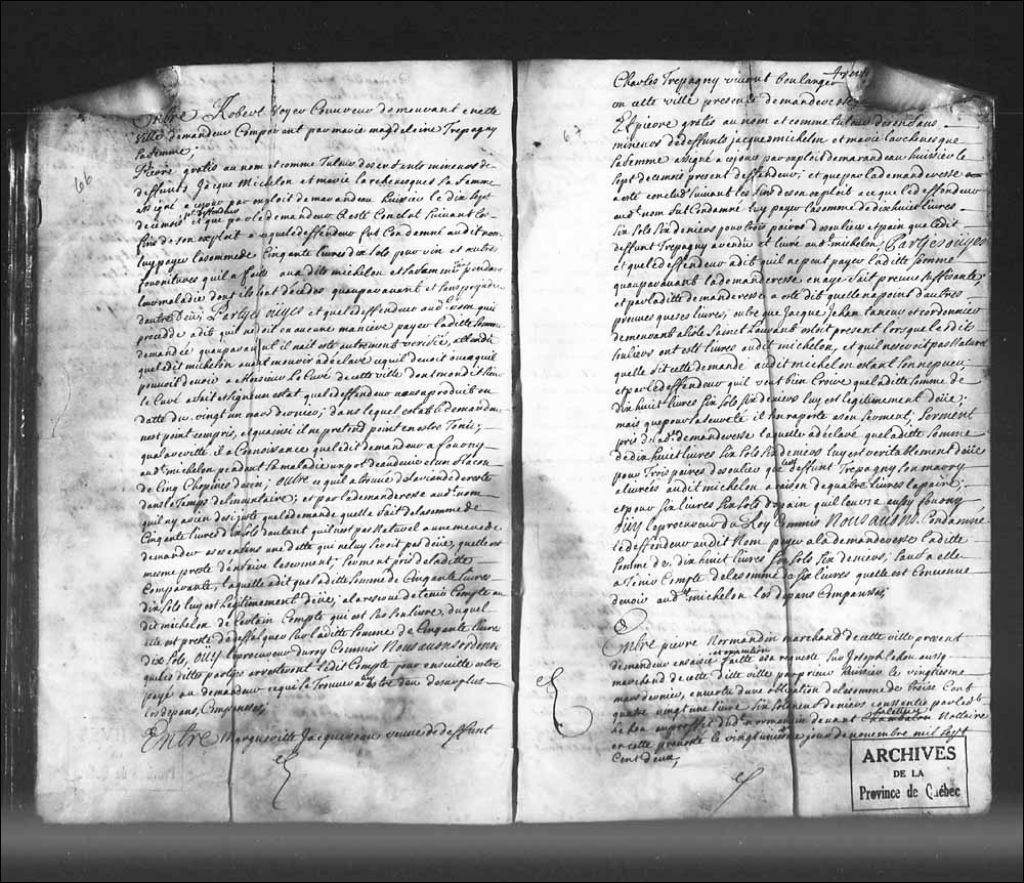 66
Entre Robert Voyer Couvreur demeurant en cette
ville demandeur Comparant par marie magdeleine Trepagny
sa femme,
Et pierre gratis au nom et comme Tuteur des enfants mineurs de
deffunts Jacque Michelon et marie La sa femme
assigné a ceyour par exploit de marandeau huissier le dix sept
de ce mois pnt deffendeur et que par le demandeur a esté Conclut suivant les
fins de son exploit a ce que le deffendeur fut Condemné audit nom
luy payer la somme de Cinquante livres dix sols pour vin et autres
fournitures quil a faits audits michelon et sa femme pendant
leur maladie dont ils sont décédes quauparavant et sans prejudice
dautre deûe; Partyes oüyes et que le deffendeur aud. nom quil
procedde a dit quil ne doit en aucune maniere payer la ditte somme
demandée quauparavant il nait esté autrement verifié, attendu
que ledit michelon avant mourir a declaré ce quil devoit ou a quil
pouvoit devoir a Monsieur Le Curé de cette ville dont mondit sieur
le Curé avoit et signé un estat que le deffendeur nous a produit en
datte du vingt un mars dernier; dans lequel estat le demandeur
nest point compris, et quainsi il ne pretend point en estre Tenu;
que la verité il a Connoissance que ledit demandeur a fourny
aud. michelon pendant sa maladie un pot deau de vie et un flacon
de Cinq Chopines de vin; outre ce quil a de la viande de reste
dans le Temps de linventaire; et par la demanderesse aud. nom
quil ny a rien de si juste que la demande quelle fait de la somme de
Cinquante livres dix sols dautant quil nest pas Naturel a une mere de
demander a ses enfens une dette qui ne luy seroit pas deüe, quelle est
mesme preste den faire le serment; serment pris de la ditte
Comparante, laquelle a dit que la ditte somme de Cinquante livres
dix sols luy est legitimement deüe; a la reserve de tenir Compte au
dit michelon de Certain Compte qui est sur son livre, duquel
elle est preste de deffalquer sur la ditte somme de Cinquante livres
dix sols, oüy le procureur du roy Commis Nous avons ordonné
que les dittes partyes arresteront ledit Compte pour ensuitte estre
payé au demandeur ce qui se Trouvera luy estre deu de surplus
Les depans Compensés,
Entre Marguerite Jacquereau veuve de deffunt
67
Charles Trepagny vivant boulanger
en cette ville presente demanderesse
Et pierre gratis au nom et comme tuteur des enfans
mineurs de deffunts jacque michelon et marie
sa femme assigné a ceyour par exploit de marandeau huissier le
sept de ce mois present deffendeur; et que par la demanderesse
a esté conclud suivant les fins de son exploit a ce que le deffendeur
aud. nom fut Condamné luy payer la somme de dix huit livres
six sols six deniers pour trois paires de souliers et pain que ledit
deffunt Trepagny a vendu et livré aud. michelon, Partyes oüyes
et que le deffendeur a dit quil ne peut payer la ditte somme
quauparavant la demanderesse en aye fait preuve suffisante;
et par la ditte demanderesse a esté dit quelle na point dautres
preuves que ses livres; outre que Jacque Jahan taneur et cordonnier
demeurant a Lisle Sainct Laurent estoit present lorsque lesdits
souliers ont esté livrés audit michelon, et quil ne seroit pas Naturel
quelle fit cette demande audit michelon estant son nepveu;
et par le deffendeur quil veut bien Croire que la ditte somme de
dix huit livres six sols six deniers luy est legitimement deüe;
mais que pour la seureté il sen raporte a son serment, serment
pris de lad. demanderesse laquelle a declaré que la ditte somme
de dix huit livres six sols six deniers luy est veritablement deüe
pour Trois paires de souliers que led. deffunt Trepagny son marry
a livrées audit michelon a raison de quatre livres la paire;
et pour six livres six sols de pain quil leur a aussy fourny
oüy le procureur du Roy Commis Nous avons Condamné
le deffendeur audit Nom payer a la demanderesse la ditte
somme de dix huit livres six sols six deniers, sauf a elle
a Tenir Compte de la somme de six livres quelle est Convenue
devoir aud. michelon Les depans Compensés;
Entre pierre Normandin marchand de cette ville present
demandeur en saisie faitte a sa requeste sur Joseph Lehou aussy
marchand de cette ditte ville par prieur huissier le vingtiesme
mars dernier, en vertu dune obligation de la somme de treize Cent
quatre vingt une livre six sols neuf deniers consentie par led.
Lehou au proffit dud. normandin devant Chambalon Nottaire
en cette prevosté le vingt uniesme jour de novembre mil sept
cent deux,
ARCHIVES
DE LA
Province de Québec